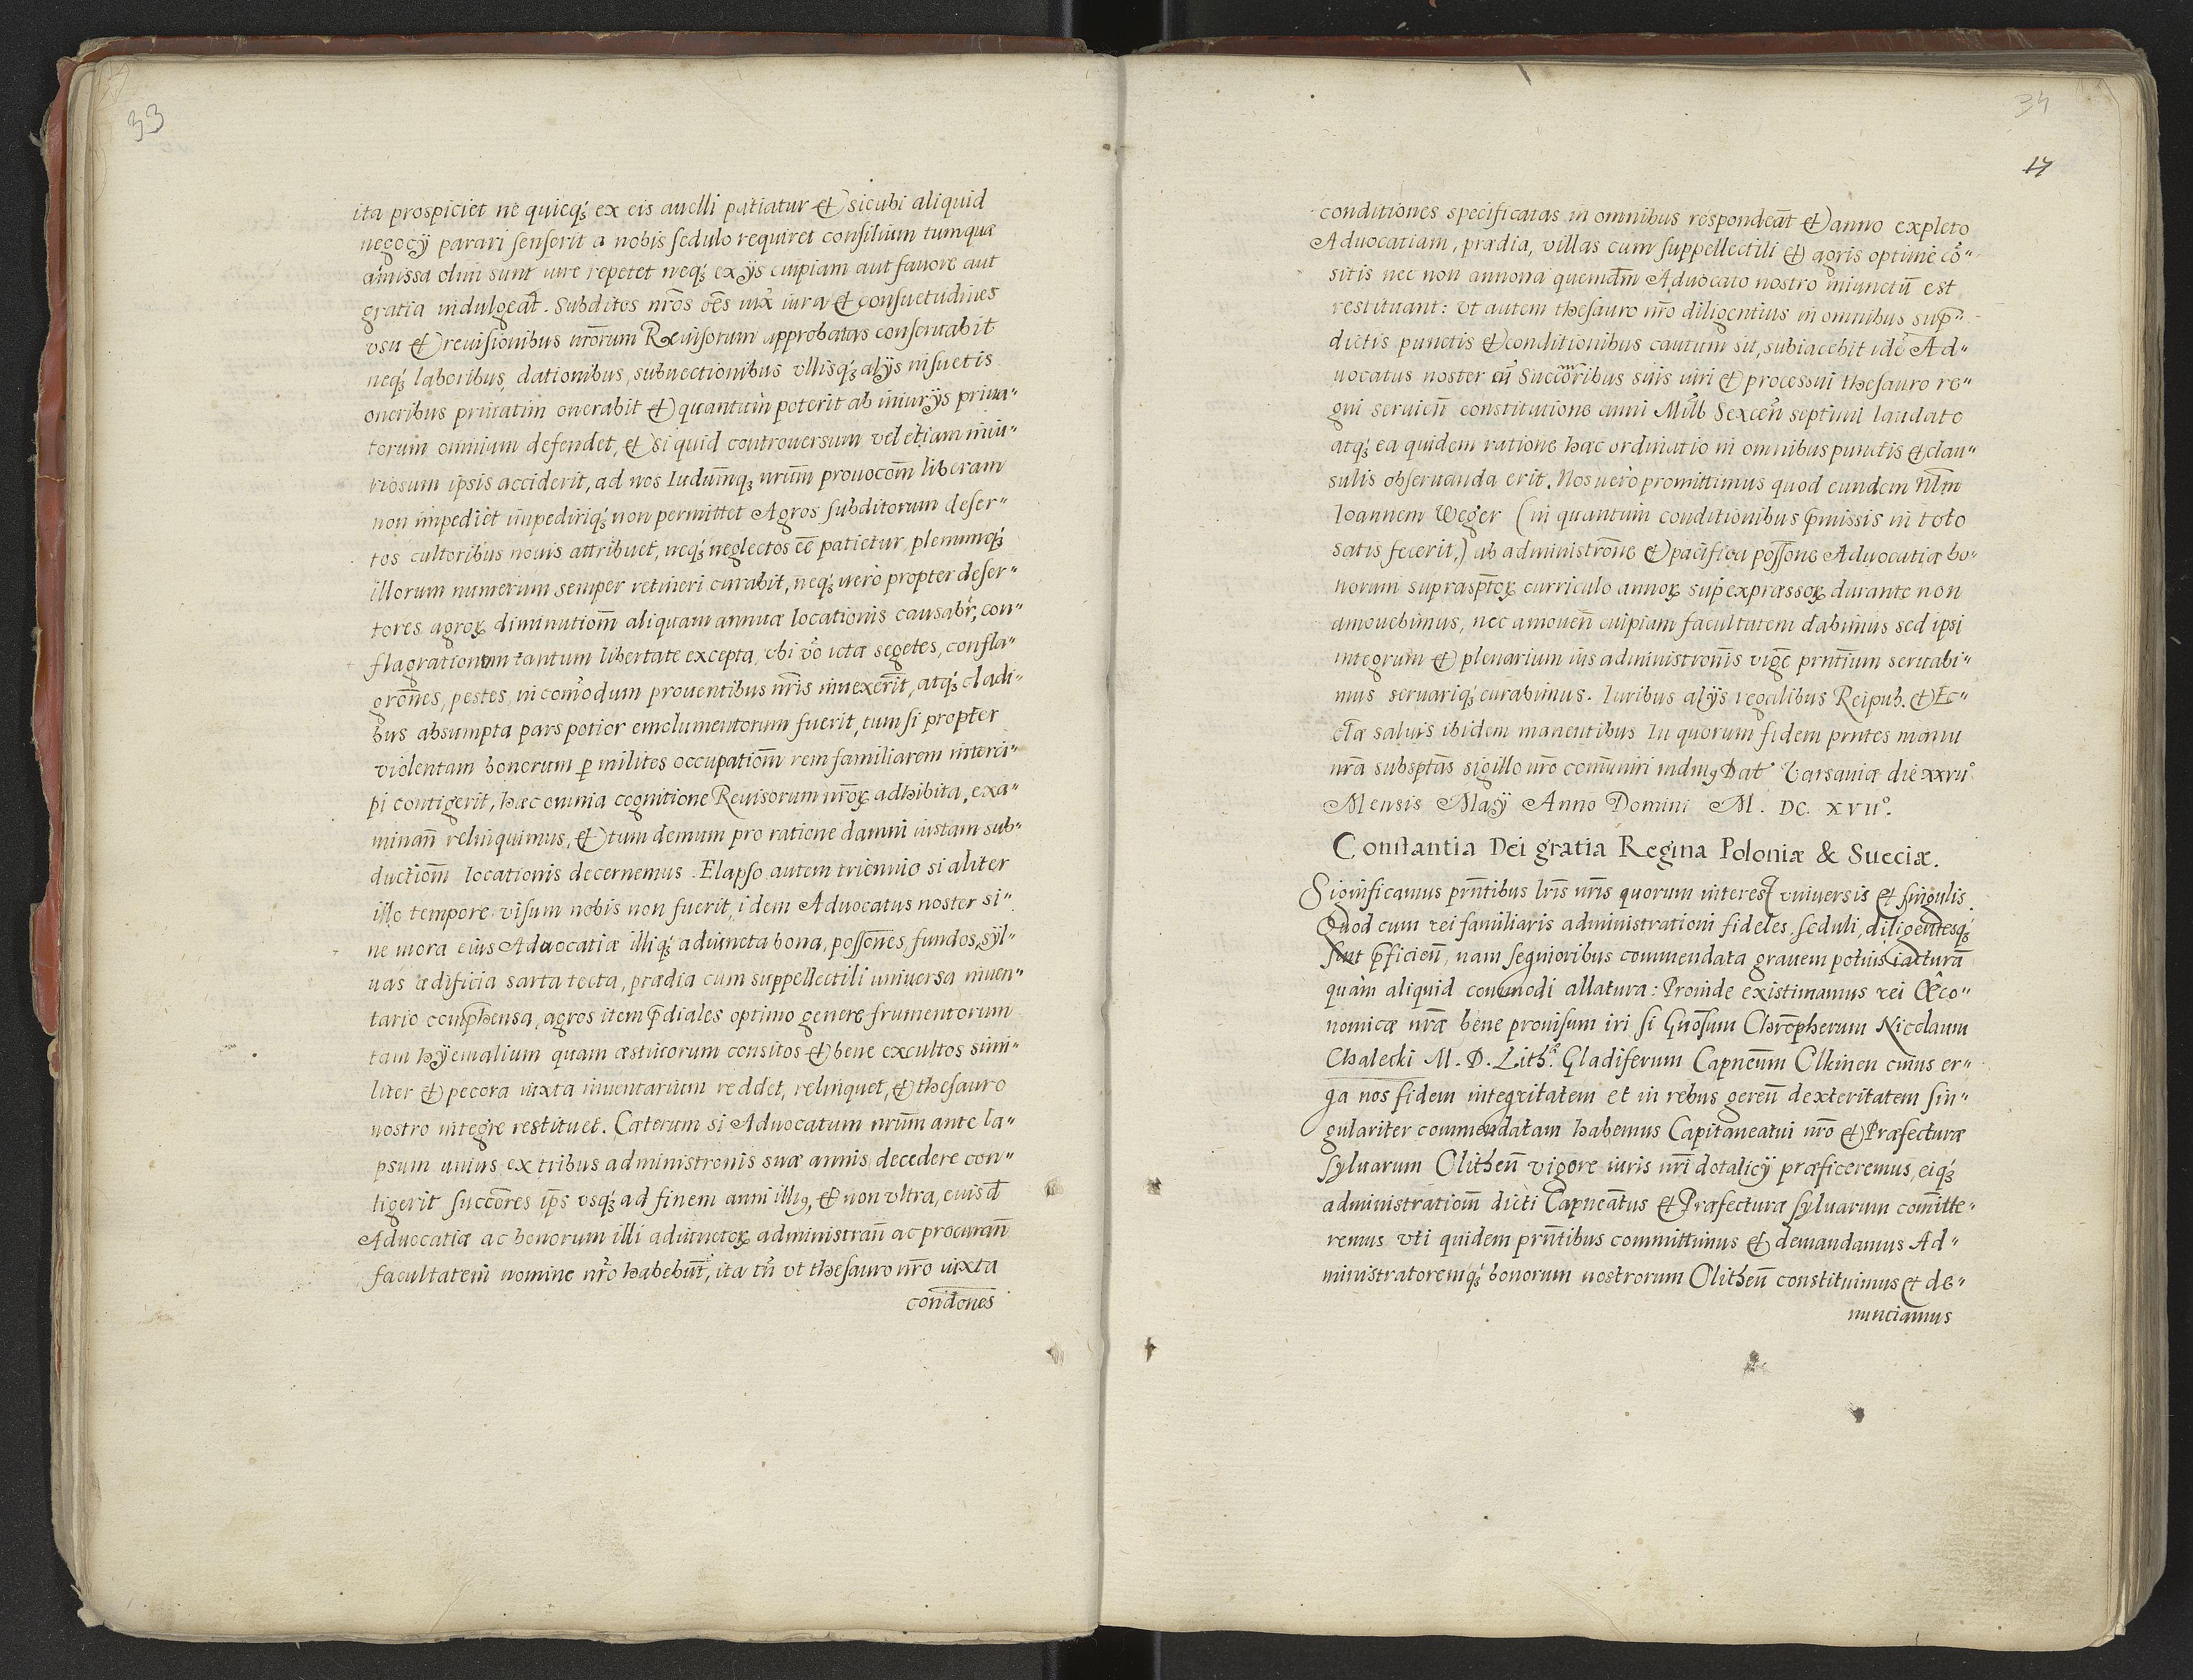 33
ita prospiciet ne quicq́; ex eis auelli patiatur Et sicubi aliquid
negocÿ parari senserit a nobis sedulo requiret consilium tumquæ
amissa olim sunt iure repetet neq́; ex ÿs cuipiam aut fauore aut
gratia indulgeat̃. Subditos nr̃os ões iux̃ iura Et consuetudines
vsu Et reuisionibus nr̃orum Reuisorum approbatas conseruabit
neq́; laboribus, dationibus, subuectionibus vllisq́; alÿs insuetis
oneribus priuatim onerabit Et quantum poterit ab iniurÿs priua"
torum omnium defendet, Et si quid controuersum vel etiam iniu"
riosum ipsis acciderit, ad nos Iudiũmq; nrũm prouocom̃ liberam
non impediet impediriq́; non permittet Agros subditorum deser"
tos cultoribus nouis attribuet, neq́; neglectos eẽ patietur, plenumq́;
illorum numerum semper retineri curabit, neq́; uero propter deser"
tores agroꝝ diminutiom̃ aliquam annuæ locationis causabr̃, con"
flagrationum tantum libertate excepta, vbi võ ictæ segetes, confla"
grõnes, pestes, incom̃odum prouentibus nr̃is inuexerĩt, atq́; cladi"
bus absumpta pars potior emolumentorum fuerit, tum si propter
violentam bonorum ꝑ milites occupatiom̃ rem familiarem interci"
pi contigerit, hæc omnia cognitione Reuisorum nr̃oꝝ adhibita, exa"
minañ relinquimus, Et tum demum pro ratione damni iustam sub"
ductiom̃ locationis decernemus. Elapso autem triennio si aliter
illo tempore visum nobis non fuerit, idem Aduocatus noster si"
ne mora eius Aduocatiæ illiq́; adiuncta bona, possões, fundos, sÿl"
uas ædificia sarta tecta, prædia cum suppellectili uniuersa inuen"
tario comp̃hensa, agros item p̃diales optimo genere frumentorum
tam hÿemalium quam æstiuorum consitos Et bene excultos simi"
liter Et pecora iuxta inuentarium reddet, relinquet, Et thesauro
nostro integre restituet. Cæterum si Aduocatum nrũm ante la"
psum unius ex tribus administronis suæ annis decedere con"
tigerit succõres ip̃s vsq́; ad finem anni illi9, Et non vltra, euisd̃
Aduocatiæ ac bonorum illi adiunctoꝝ administrañ ac procurañ
facultatem nomine nr̃o habebũt, ita tñ vt thesauro nr̃o iuxta
condõnes
34
17
conditiones specificatas in omnibus respondeãt Et anno expleto
Aduocatiam, prædia, villas cum suppellectili Et agris optime cõ"
sitis nec non annona quemadm̃ Aduocato nostro iniunctũ est
restituant: vt autem thesauro nr̃o diligentius in omnibus sup̃"
dictis punctis Et conditionibus cautum sit, subiacebit idẽ Ad"
uocatus noster cũ Succõribus suis iuri Et processui thesauro re"
gni seruieñ constitutione anni Mill̃ Sexceñ septimi laudato
atq́; ea quidem ratione hæc ordinatio in omnibus punctis Et clau"
sulis obseruanda erit. Nos uero promittimus quod eundem Nl̃m
Ioannem Weger (in quantum conditionibus p̃missis in toto
satis fecerit,) ab administrõne Et pacifica possone Aduocatiæ bo"
norum suprasp̃toꝝ curriculo annoꝝ sup̃expræssoꝝ durante non
amouebimus, nec amoueñ cuipiam facultatem dabimus sed ipsi
integrum Et plenarium ius administronis̃ vigẽ prñtium seruabi"
mus seruariq́; curabimus. Iuribus alÿs regalibus Reipub. Et Ec"
clæ saluis ibidem manentibus In quorum fidem prñtes manu
nrã subsptãs sigillo nr̃o com̃uniri indm9 Dat̃ Varsauiæ die xxvii°
Mensis Maÿ Anno Domini M. DC. XVII°.
Constantia Dei gratia Regina Poloniæ & Sueciæ.
Significamus prñtibus lr̃is nr̃is quorum interest vniuersis et singulis.
Quod cum rei familiaris administrationi fideles, seduli, diligentesq́;
sint p̃ficieñ, nam segnioribus commendata grauem potius iacturã
quàm aliquid commodi allatura: Proinde existimamus rei Œco"
nomicæ nrã bene prouisum iri si Gnõsum Chrõpherum Nicolaum
Chalecki M. D. Lith.æ Gladiferum Capneũm Olkinen cuius er"
ga nos fidem integritatem et in rebus gereñ dexteritatem sin"
gulariter commendatam habemus Capitaneatui nr̃o Et Præfecturæ
syluarum Olitheñ vigore iuris nrĩ dotalicÿ præficeremus, eiq́;
administratiom̃ dicti Capneãtus Et Præfecturæ syluarum com̃itte"
remus vti quidem prñtibus committimus Et demandamus Ad"
ministratoremq́; bonorum nostrorum Olitheñ constituimus et de"
nunciamus